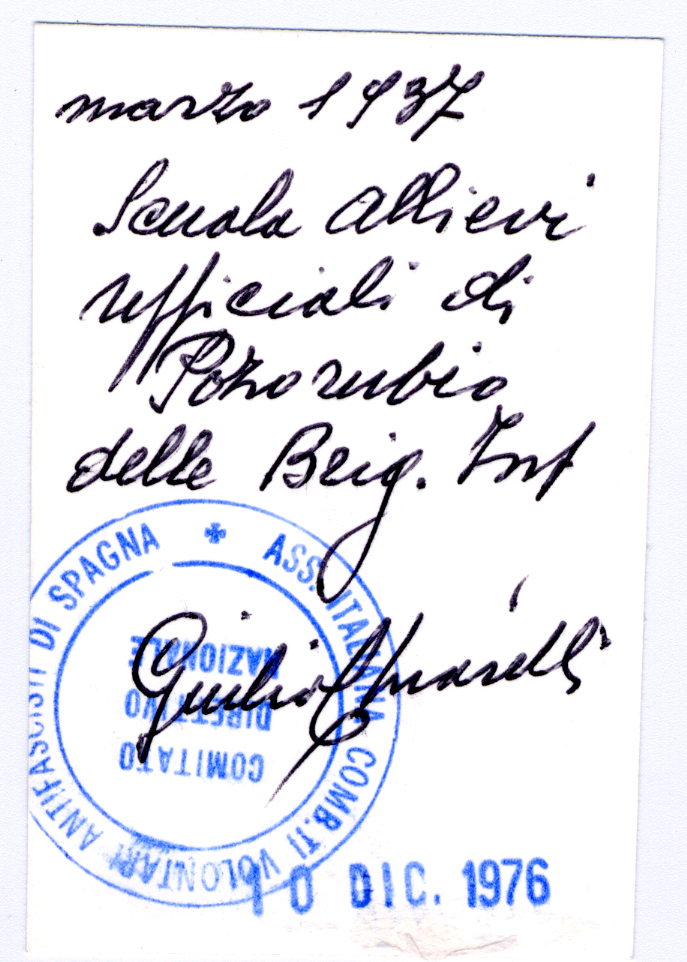 marzo 1937
Scuola allievi
ufficiali di
Pozorubio
delle Brig. Int
Giulio
ASS. ITALIANA COMB.TI VOLONTARI ANTIFASCISTI DI SPAGNA
COMITATO
DIRETTIVO
NAZIONALE
10 DIC. 1976